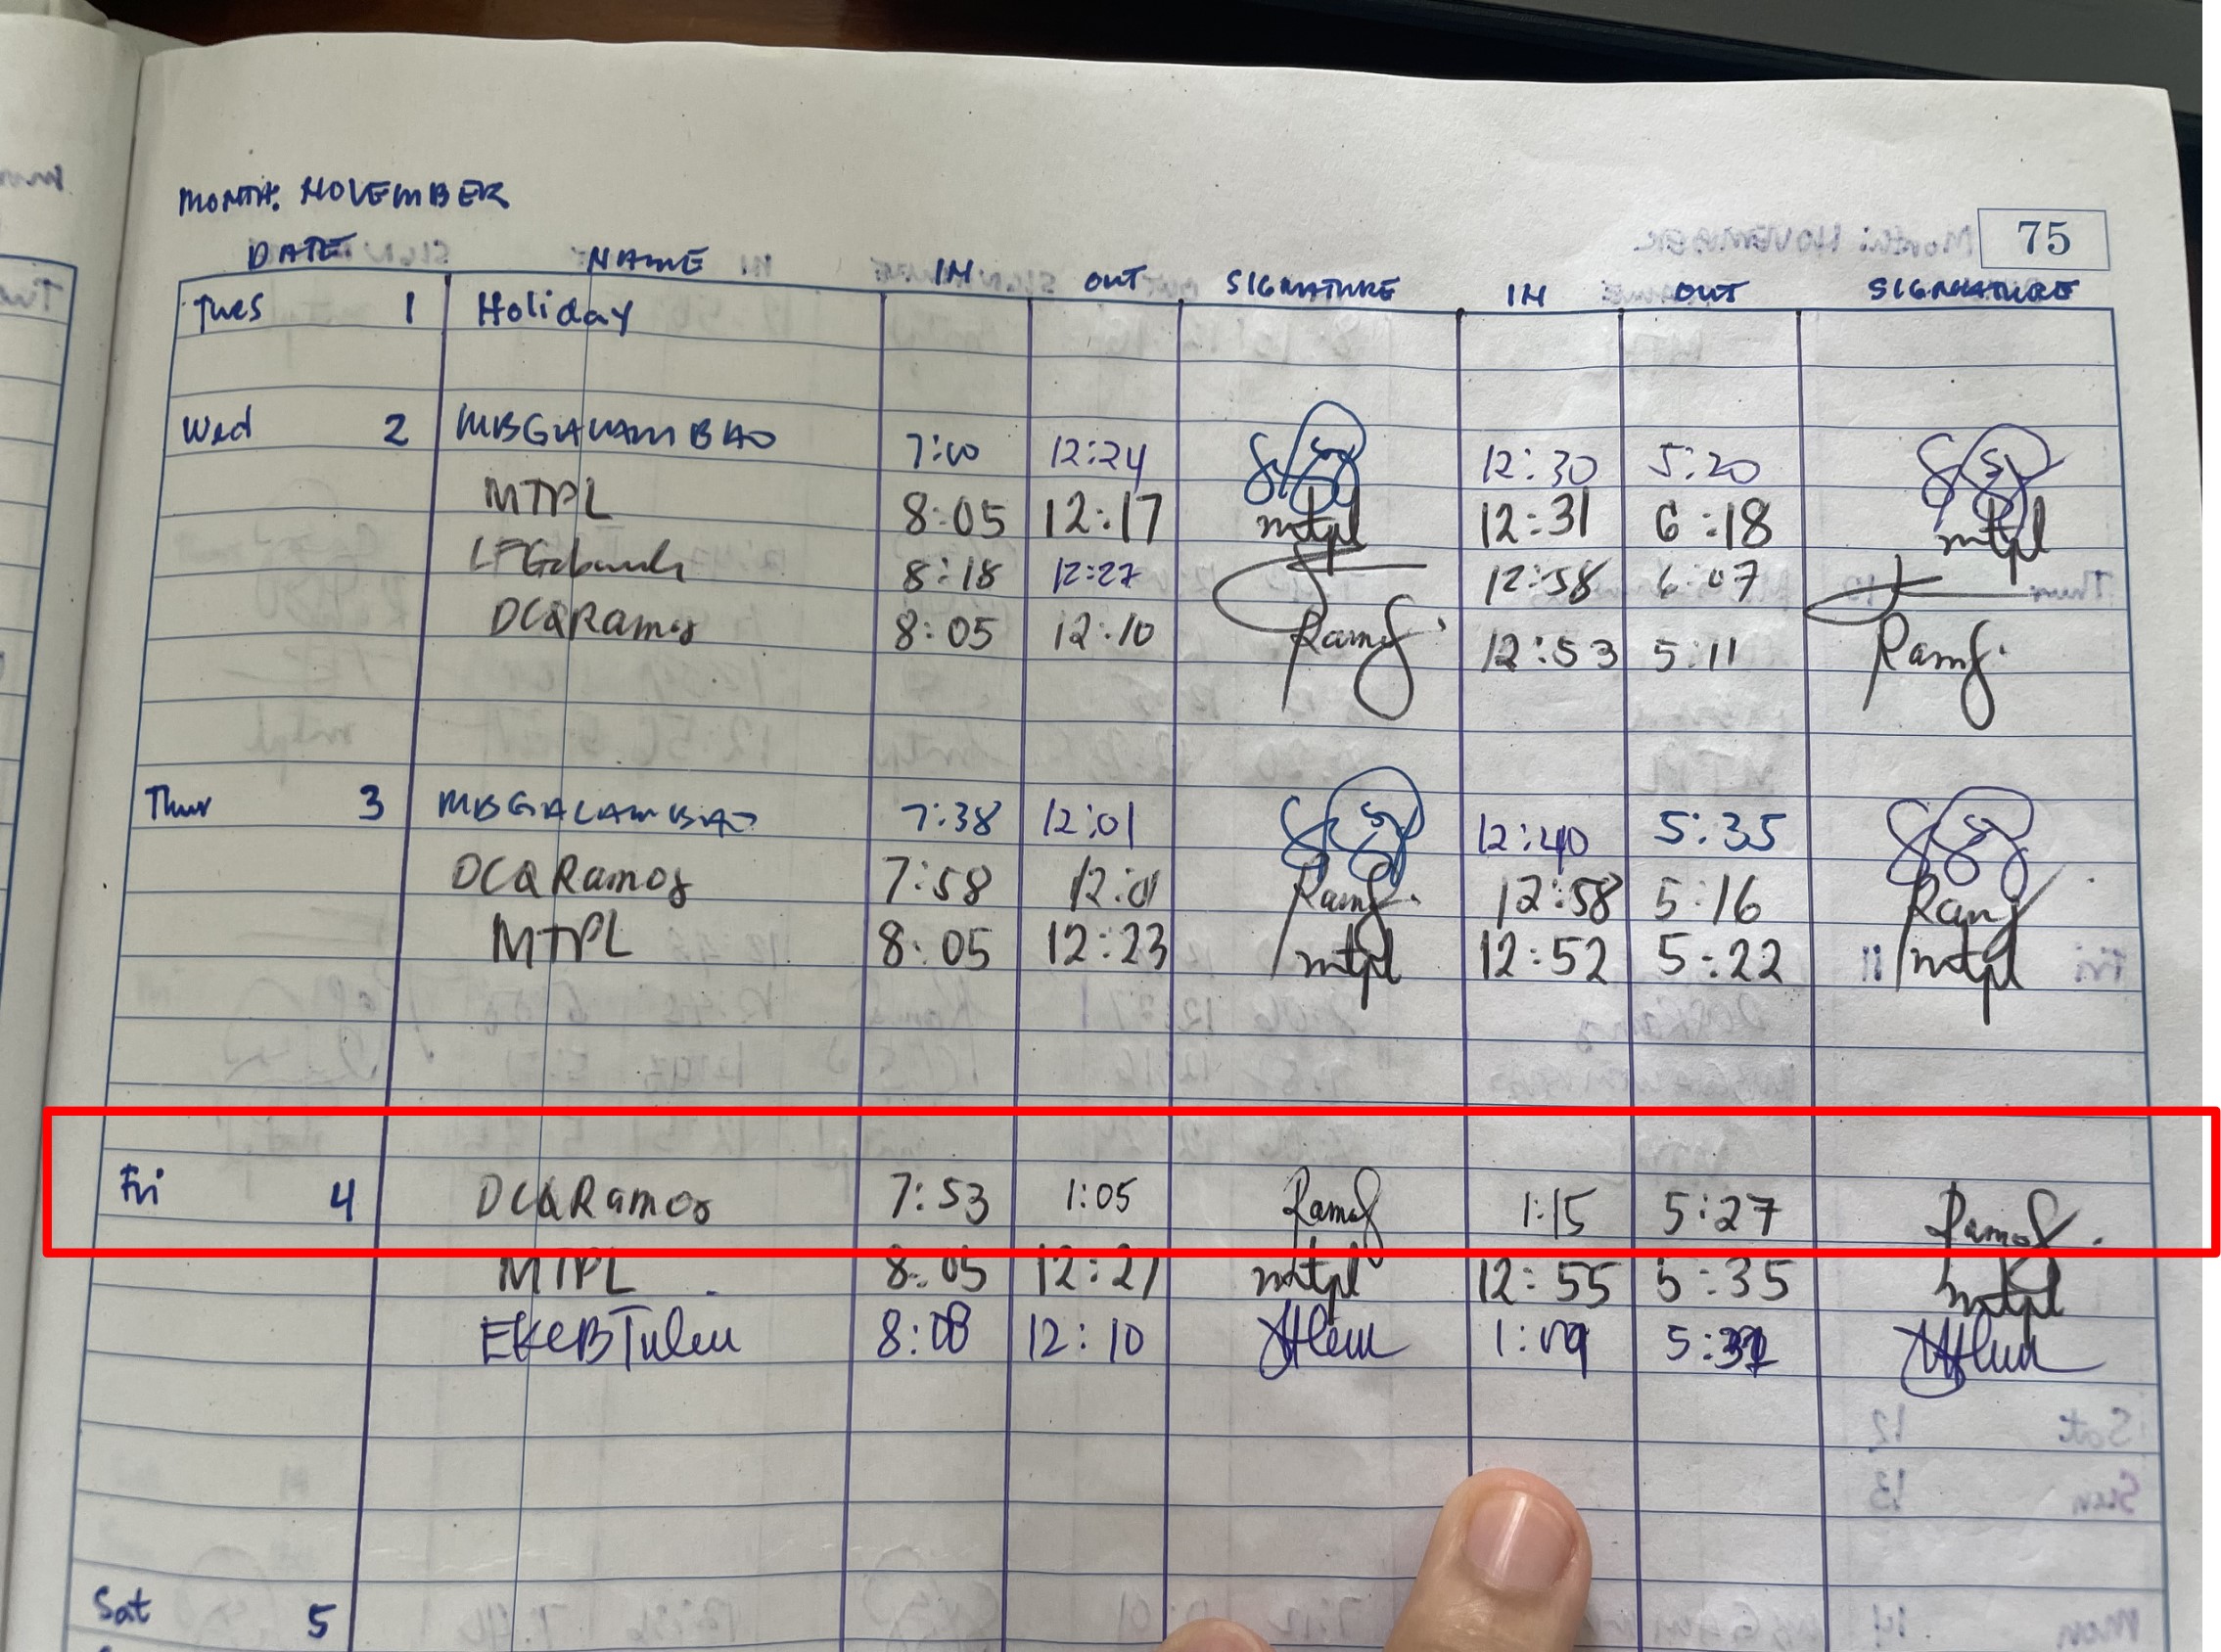 MONTH: NOVEMBER
75
DATE NAME IN OUT SIGNATURE IN OUT SIGNATURE
Tues 1 Holiday
Wed 2 MBGALAMBAO 7:10 12:24 12:30 5:20
MTPL 8:05 12:17 mtpl 12:31 6:18 mtpl
8:18 12:27 12:58 6:07
DCQRamos 8:05 12:10 Ramos 12:53 5:11 Ramos
Thur 3 MBGALAMBAO 7:38 12:01 12:40 5:35
DCQRamos 7:58 12:01 Ramos 12:58 5:16 Ramos
MTPL 8:05 12:23 mtpl 12:52 5:22 mtpl
Fri 4 DCQRamos 7:53 1:05 Ramos 1:15 5:27 Ramos
MTPL 8:05 12:21 mtpl 12:55 5:35 mtpl
8:08 12:10 1:09
Sat 5